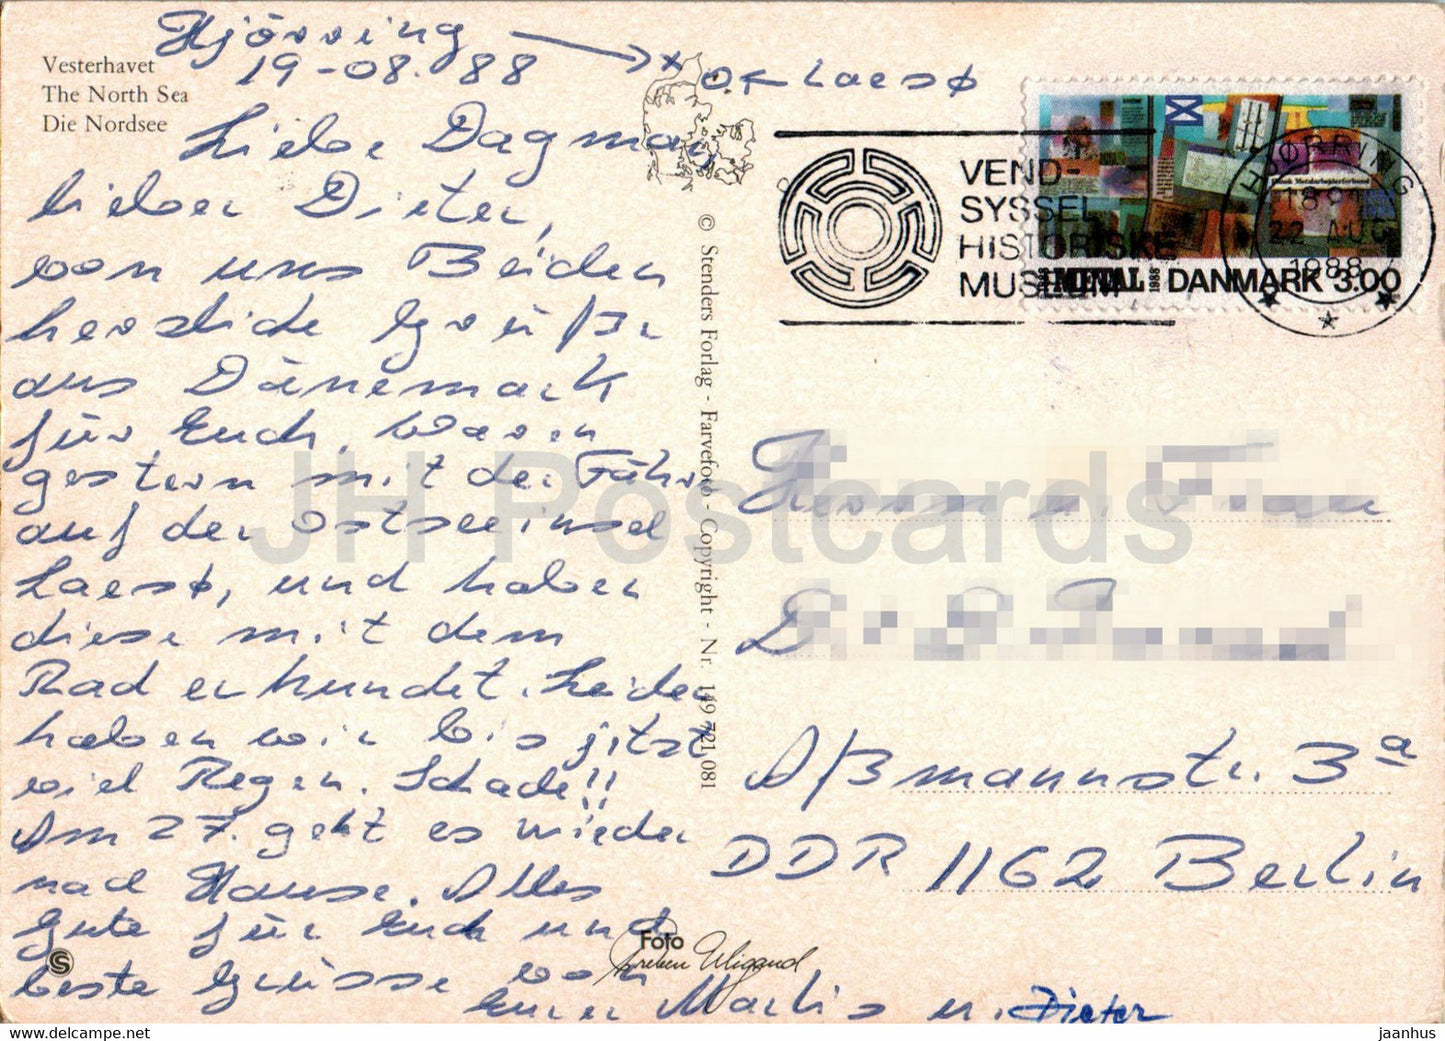 Vesterhavet
The North Sea
Die Nordsee
Hjörring
19-08. 88
Laesø
Liebe Dagmar,
lieber Dieter,
von uns Beiden
herzliche Grüße
aus Dänemark
für Euch. Waren
gestern mit der Fähre
auf der Ostseeinsel
Laesø, und haben
diese mit dem
Rad erkundet. Leider
haben wir bis jetzt
viel Regen. Schade!!
Am 27. geht es wieder
nach Hause. Alles
Gute für Euch und
beste Grüsse von
Eurer Marlis u. Dieter
© Stenders Forlag - Farvefoto - Copyright - Nr. 149 721 081
Foto
Preben Wigand
S
VEND-
SYSSEL
HISTORISKE
MUSEUM
HJØRRING
22 AUG
1988
DANMARK 3.00
1988
Herrn u. Frau
Aßmannstr. 3a
DDR 1162 Berlin
JH Postcards
www.delcampe.net
jaanhus